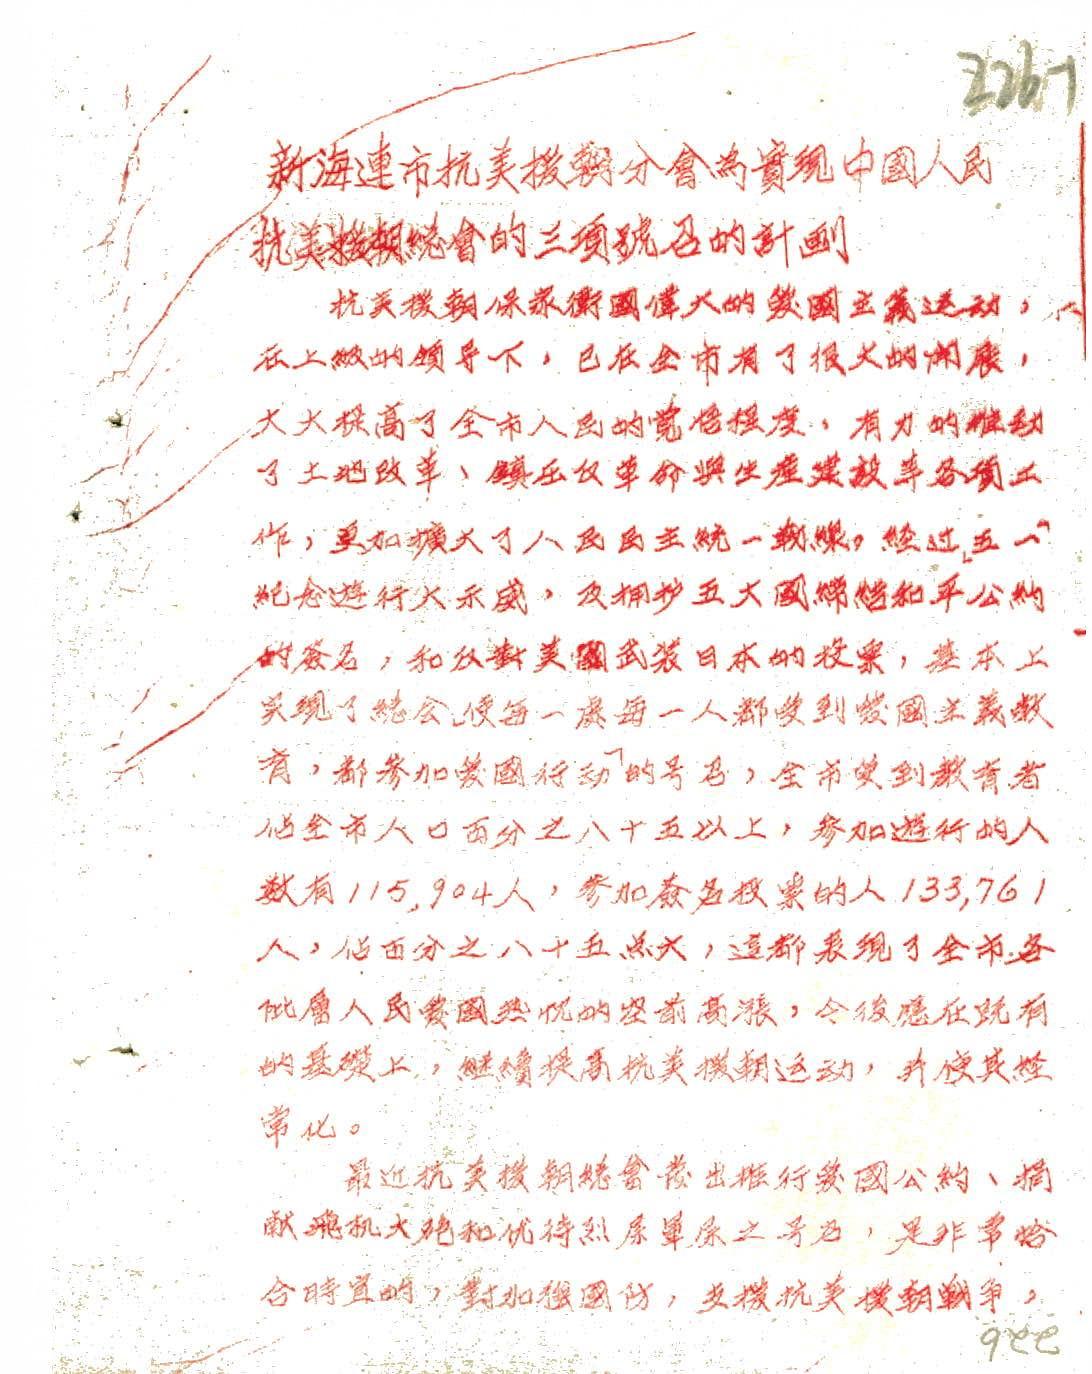 2267
新海連市抗美援朝分會為實現中國人民
抗美援朝總會的三項號召的計劃
抗美援朝保家衛國偉大的愛國主義运动，
在上級的領导下，已在全市有了很大的開展，
大大提高了全市人民的覺悟程度，有力的推動
了土地改革、鎮压反革命與生產建設等各項工
作，更加擴大了人民民主統一戰線。経过「五一」
紀念遊行大示威，及拥护五大國締結和平公約
的簽名，和反對美國武裝日本的投票，基本上
实現了總会「使每一處每一人都受到愛國主義教
育，都參加愛國行动」的号召，全市受到教育者
佔全市人口百分之八十五以上，參加遊行的人
数有115,904人，參加簽名投票的人133,761
人，佔百分之八十五点六，這都表現了全市各
阶層人民愛國热忱的空前高漲，今後應在既有
的基礎上，継續提高抗美援朝运动，并使其経
常化。
最近抗美援朝總會發出推行愛國公約、捐
献飛机大砲和优待烈属軍属之号召，是非常恰
合時宜的，對加強國防，支援抗美援朝戰爭，